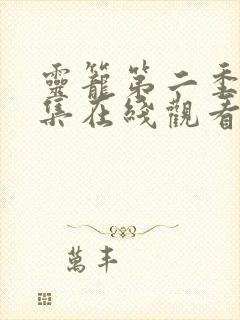 靈籠第二季
集在綫觀看
萬丰